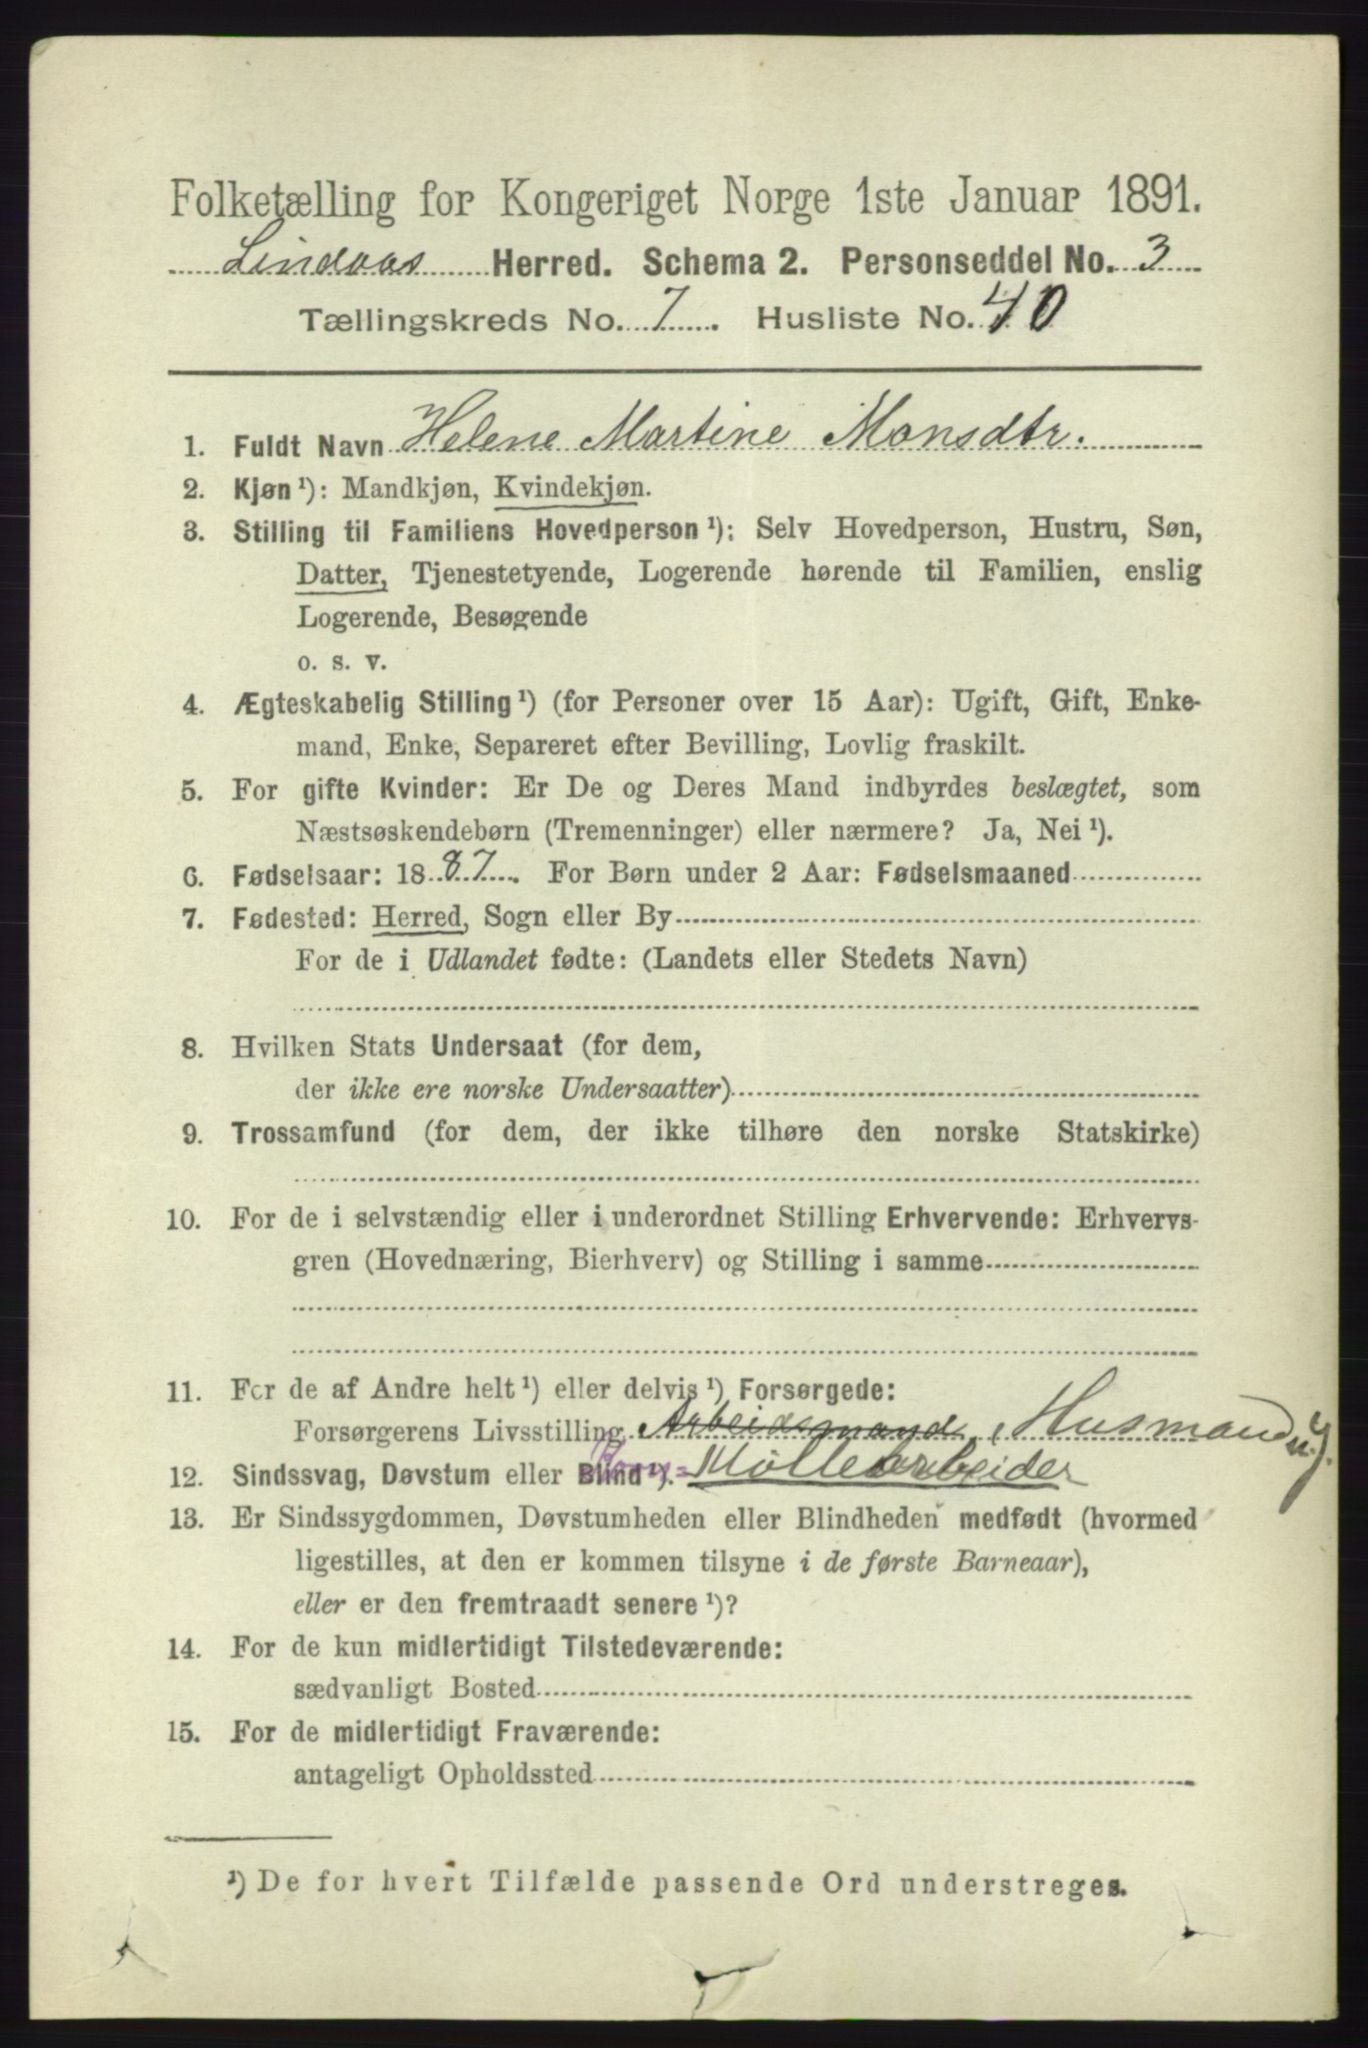 Folketælling for Kongeriget Norge 1ste Januar 1891.
Lindaas Herred. Schema 2. Personseddel No. 3
Tællingskreds No. 7. Husliste No. 40
1. Fuldt Navn Helene Martine Monsdtr.
2. Kjøn ¹): Mandkjøn, Kvindekjøn.
3. Stilling til Familiens Hovedperson ¹): Selv Hovedperson, Hustru, Søn,
Datter, Tjenestetyende, Logerende hørende til Familien, enslig
Logerende, Besøgende
o. s. v.
4. Ægteskabelig Stilling ¹) (for Personer over 15 Aar): Ugift, Gift, Enke-
mand, Enke, Separeret efter Bevilling, Lovlig fraskilt.
5. For gifte Kvinder: Er De og Deres Mand indbyrdes beslægtet, som
Næstsøskendebørn (Tremenninger) eller nærmere? Ja, Nei ¹).
6. Fødselsaar: 1887. For Børn under 2 Aar: Fødselsmaaned
7. Fødested: Herred, Sogn eller By
For de i Udlandet fødte: (Landets eller Stedets Navn)
8. Hvilken Stats Undersaat (for dem,
der ikke ere norske Undersaatter)
9. Trossamfund (for dem, der ikke tilhøre den norske Statskirke)
10. For de i selvstændig eller i underordnet Stilling Erhvervende: Erhvervs-
gren (Hovednæring, Bierhverv) og Stilling i samme
11. For de af Andre helt ¹) eller delvis ¹) Forsørgede:
Forsørgerens Livsstilling Arbeidsmand, Husmand
12. Sindssvag, Døvstum eller Blind ¹). Møllearbeider
13. Er Sindssygdommen, Døvstumheden eller Blindheden medfødt (hvormed
ligestilles, at den er kommen tilsyne i de første Barneaar),
eller er den fremtraadt senere ¹)?
14. For de kun midlertidigt Tilstedeværende:
sædvanligt Bosted
15. For de midlertidigt Fraværende:
antageligt Opholdssted
¹) De for hvert Tilfælde passende Ord understreges.